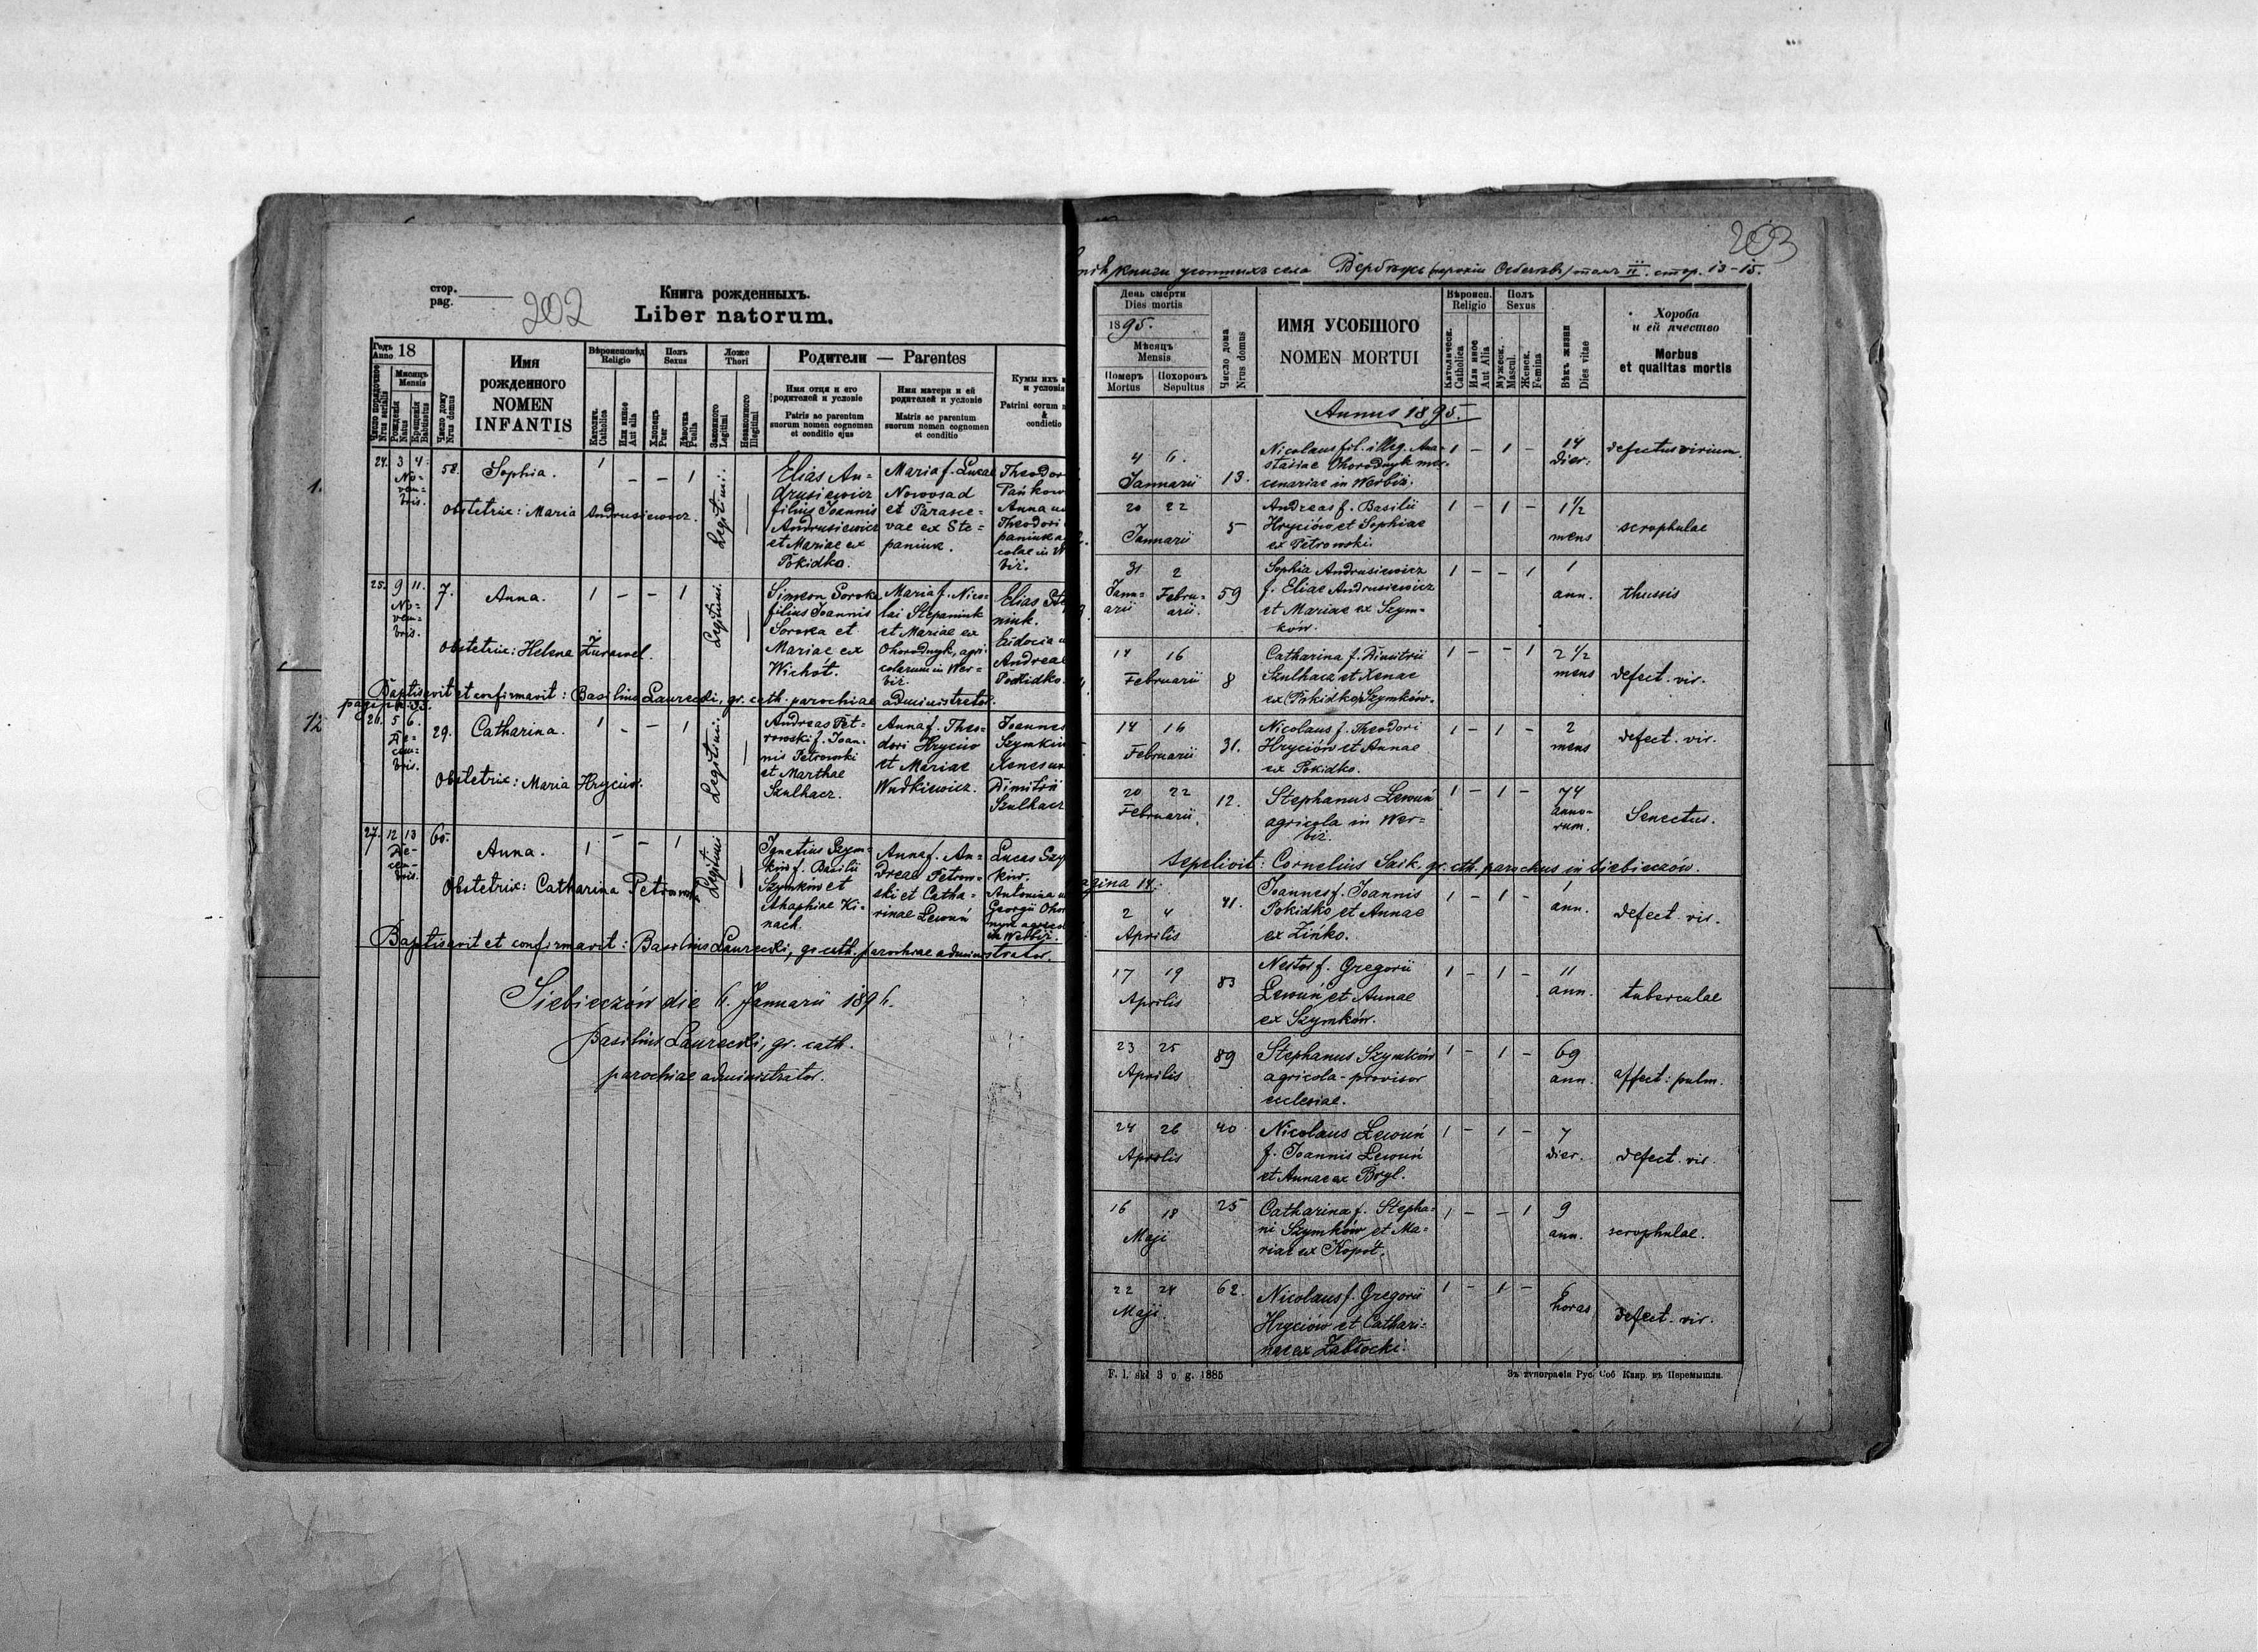 стор.
pag.
202
Книга рожденныхъ.
Liber natorum.
Годъ Anno 18
Число порядочное
Nrus serialis
Мѣсяцъ
Mensis
Рожденія
Natus
Крещенія
Babtisatus
Число дому
Nrus domus
Имя
рожденного
NOMEN
INFANTIS
Вѣроисповѣд
Religio
Католич.
Catholica
Или инное
Aut alia
Полъ
Sexus
Хлопецъ
Puer
Дѣвочка
Puella
Ложе
Thori
Законного
Legitimi
Незаконного
Illegitimi
Родители — Parentes
Имя отця и его
родителей и условіе
Patris ac parentum
suorum nomen cognomen
et conditio ejus
Имя матери и ей
родителей и условіе
Matris ac parentum
suorum nomen cognomen
et conditio
Кумы ихъ
и условія
Patrini eorum
&
conditio
1.
24. 3 4. 58. Sophia. 1 – – 1
No-
vem-
bris.
Legitimi:
Obstetrix: Maria Andrusiewicz.
Elias An-
drusiewicz
filius Joannis
Andrusiewicz
et Mariae ex
Pokidko.
Maria f. Lucae
Nowosad
et Parasce-
vae ex Ste-
paniuk.
Theodor
Pańkow
Anna
Theodori
paniuk
colae in
biż.
25. 9 11. 7. Anna. 1 – – 1
No-
vem-
bris.
Legitimi.
Obstetrix: Helena Żurawel.
Simeon Soroka
filius Joannis
Soroka et
Mariae ex
Wichót.
Maria f. Nico-
lai Stepaniuk
et Mariae ex
Ohorodnyk, agri
colarum in Wer-
biż.
Elias
niuk.
Eudocia
Andreae
Pokidko.
Baptisavit et confirmavit: Basilius Laurecki, gr. cath. parochiae administrator.
12
26. 5 6. 29. Catharina. 1 – – 1
De-
cem-
bris.
Legitimi:
Obstetrix: Maria Hryciw.
Andreas Pet-
rowski f. Joan-
nis Petrowski
et Marthae
Szulhacz.
Anna f. Theo-
dori Hryciw
et Mariae
Wudkiewicz.
Joannes
Szymkiw
Dimitrii
Szulhacz
27. 12 13 60. Anna. 1 – – 1
De-
cem-
bris.
Legitimi
Obstetrix: Catharina
Ignatius Szym-
kiw f. Basilii
Szymków et
Ahaphiae Ki-
nach.
Anna f. An-
dreae Petrow-
ski et Catha-
rinae Lewuń
Lucas
kiw.
Antonina
Georgii
in Werbiż.
Baptisavit et confirmavit: Basilius Laurecki, gr. cath. parochiae administrator.
Siebieczów die 6. Januarii 1896.
Basilius Laurecki, gr. cath.
parochiae administrator.
203
книги усопшихъ села Вербѣжъ стор. 13-15.
День смерти
Dies mortis
1895.
Мѣсяцъ
Mensis
Померъ
Mortus
Похоронъ
Sepultus
Число дома
Nrus domus
ИМЯ УСОБШОГО
NOMEN MORTUI
Вѣроисп.
Religio
Католическ.
Catholica
Или иное
Aut Alia
Полъ
Sexus
Мужеск.
Mascul.
Женск.
Femina
Вѣкъ жизни
Dies vitae
Хороба
и ей ячество
Morbus
et qualitas mortis
Annus 1895.
4 6. Januarii 13.
Nicolaus fil. illeg. Ana-
stasiae Ohorodnyk mer-
cenariae in Werbiż.
1 – 1 – 14 dier: defectus virium.
20 22 Januarii 5
Andreas f. Basilii
Hryciów et Sophiae
ex Petrowski.
1 – 1 – 1½ mens scrophulae
31 Janu-
arii 2 Febru-
arii. 59
Sophia Andrusiewicz
f. Eliae Andrusiewicz
et Mariae ex Szym-
ków.
1 – – 1 1 ann. thussis
14 16 Februarii 8
Catharina f. Dimitrii
Szulhacz et Xenae
ex (Pokidko) Szymków.
1 – – 1 2½ mens defect. vir.
14 16 Februarii 31.
Nicolaus f. Theodori
Hryciów et Annae
ex Pokidko.
1 – 1 – 2 mens defect. vir.
20 22 Februarii. 12.
Stephanus Lewuń
agricola in Wer-
biż.
1 – 1 – 74 anno-
rum. Senectus.
Sepelivit: Cornelius Saik gr. cth. parochus in Siebieczów.
agina 14:
2 4 Aprilis 41.
Joannes f. Joannis
Pokidko et Annae
ex Zińko.
1 – 1 – 1 ann. defect. vir.
17 19 Aprilis 83
Nestor f. Gregorii
Lewuń et Annae
ex Szymków.
1 – 1 – 11 ann. tuberculae
23 25 Aprilis 89
Stephanus Szymków
agricola - provisor
ecclesiae.
1 – 1 – 69 ann. affect: pulm.
24 26 Aprilis 40
Nicolaus Lewuń
f. Joannis Lewuń
et Annae ex Bryl.
1 – 1 – 7 dier. defect. vir.
16 18 Maji 25
Catharina f. Stepha-
ni Szymków et Ma-
riae ex Kopot.
1 – – 1 9 ann. scrophulae.
22 24 Maji 62.
Nicolaus f. Gregorii
Hryciów et Cathari-
nae ex Zabłocki.
1 – 1 – 6 horas defect. vir.
F. l. skl 3 o g. 1885
Зъ типографіи Рус. Соб Капр. въ Перемышли.